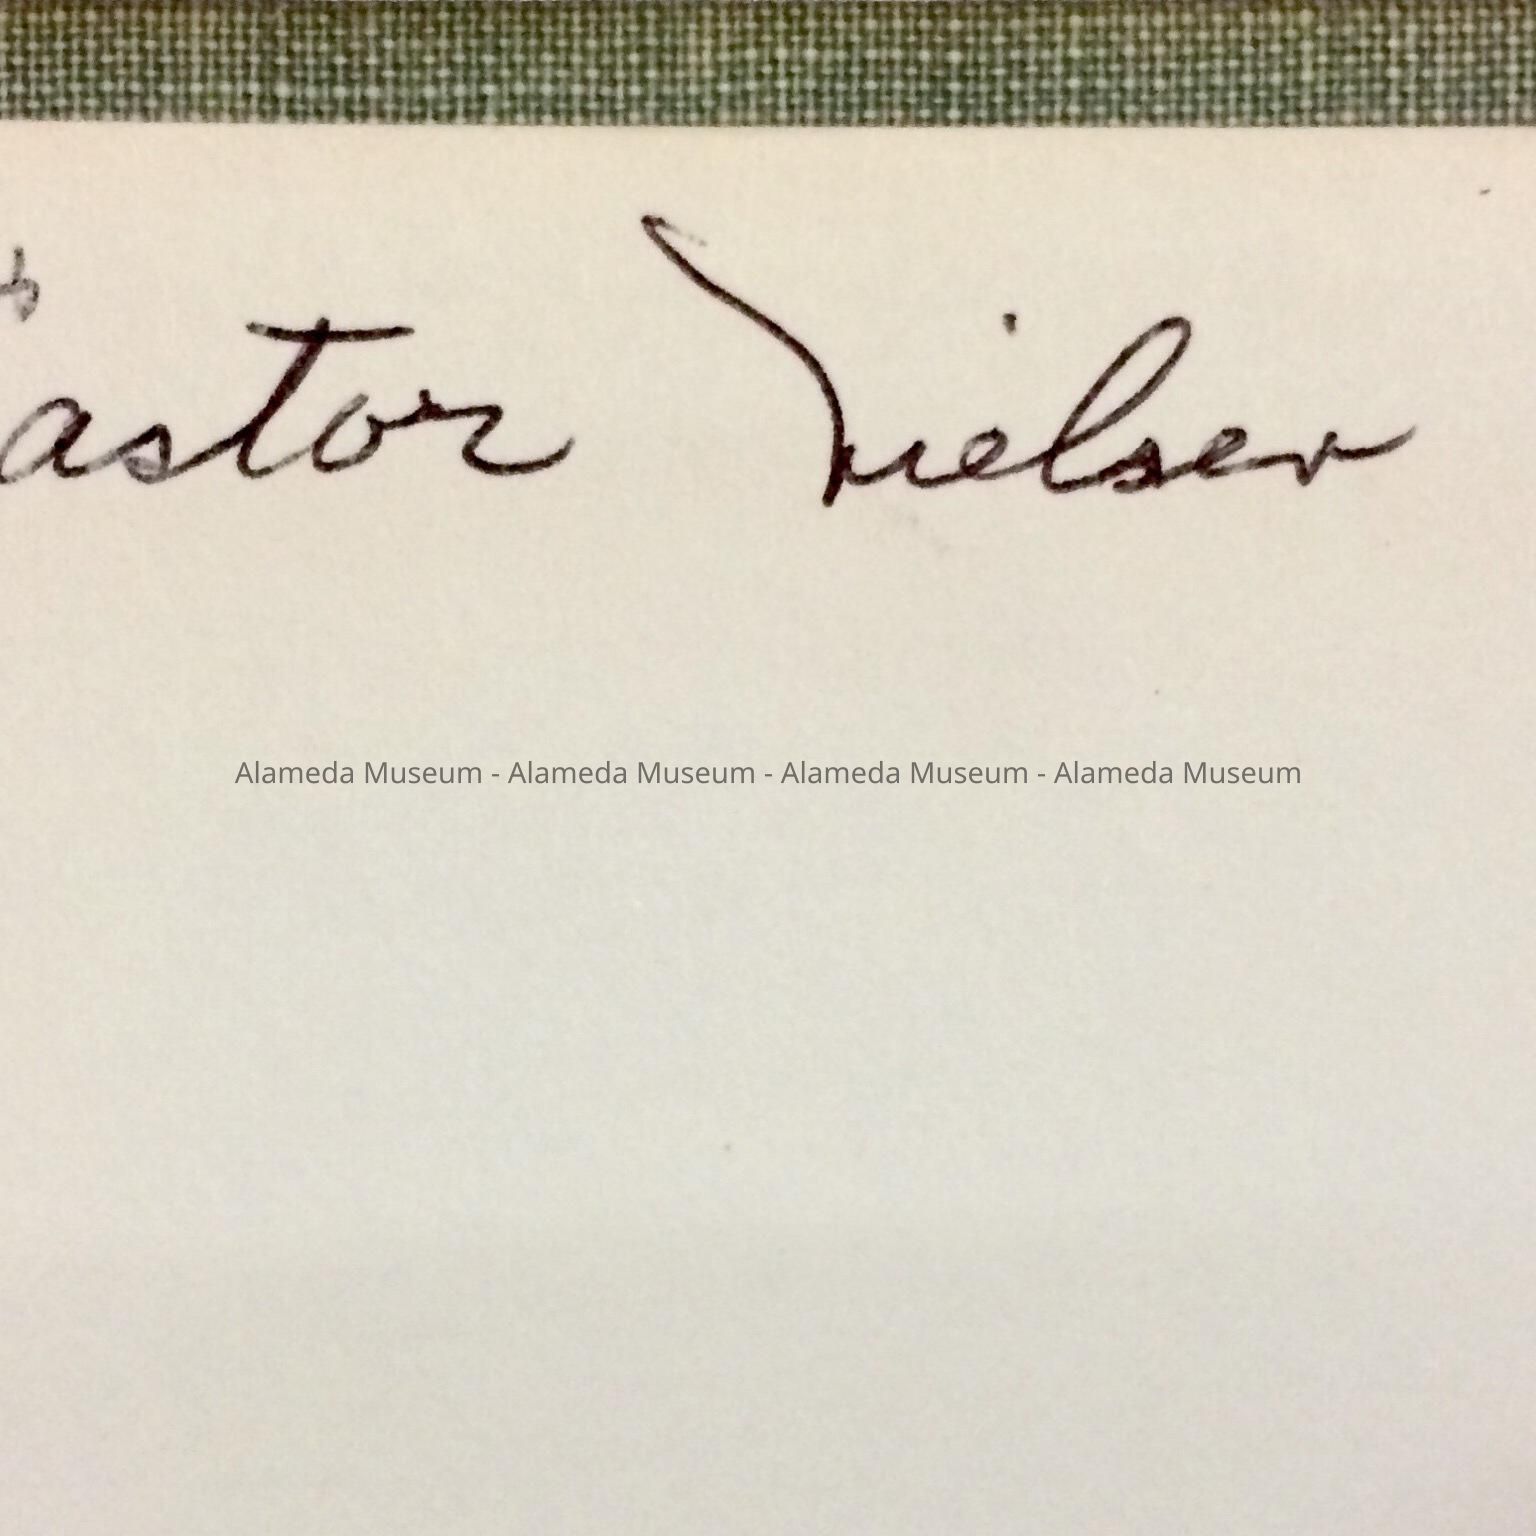 astor Nielsen
Alameda Museum - Alameda Museum - Alameda Museum - Alameda Museum